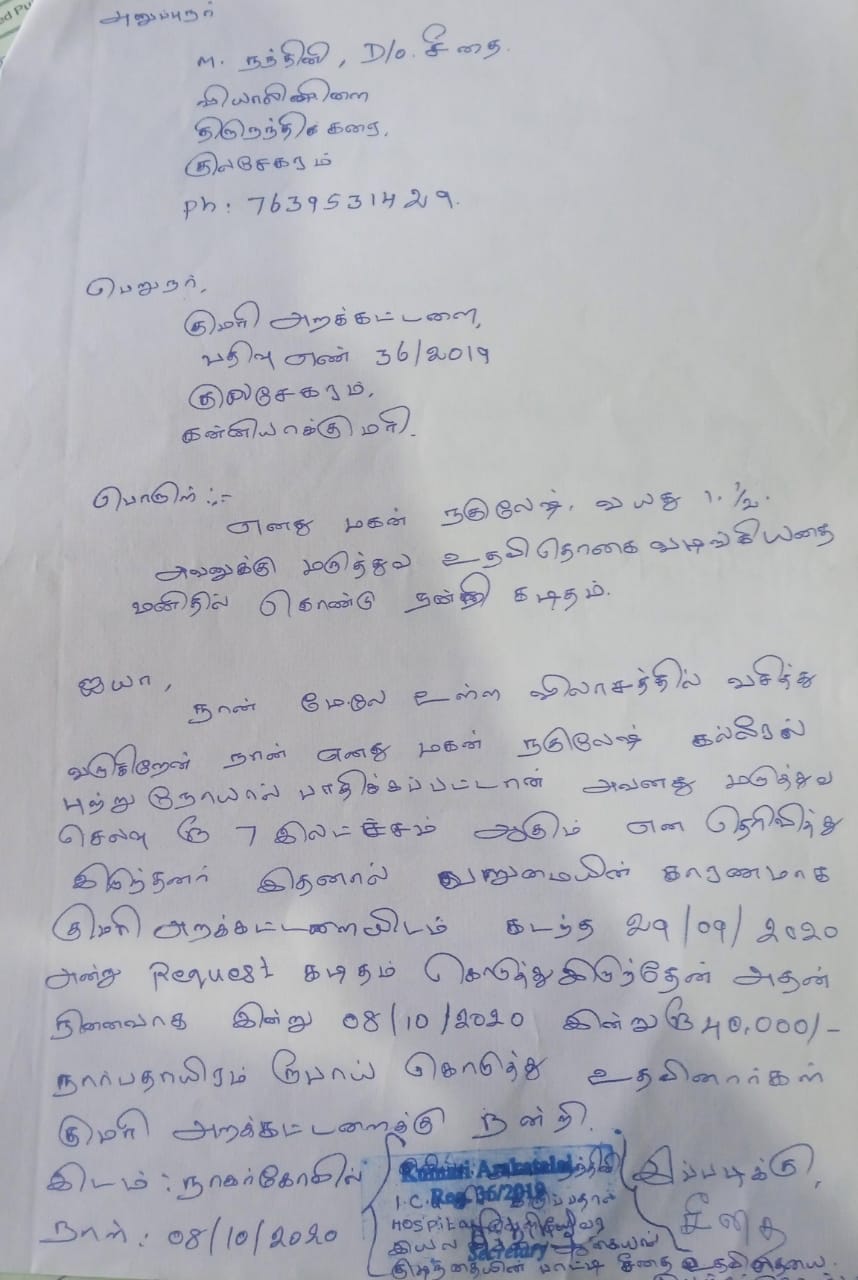 அனுப்புநர்
M. நந்தினி, D/o. சீதை.
வியாலிவிளை
திருநந்திக்கரை,
குலசேகரம்
Ph: 7639531429.
பெறுநர்,
குமரி அறக்கட்டளை,
பதிவு எண் 36/2019
குலசேகரம்,
கன்னியாக்குமரி.
பொருள் :-
எனது மகன் நகுலேஷ். வயது 1. 1/2.
அவனுக்கு மருத்துவ உதவிதொகை வழங்கியதை
மனிதில் கொண்டு நன்றி கடிதம்.
ஐயா,
நான் மேலே உள்ள விலாசத்தில் வசித்து
வருகிறேன் நான் எனது மகன் நகுலேஷ் கல்லீரல்
புற்று நோயால் பாதிக்கப்பட்டான் அவனது மருத்துவ
செலவு ரூ 7 இலட்ச்சம் ஆகும் என தெரிவித்து
இருந்தனர் இதனால் வறுமையின் காரணமாக
குமரி அறக்கட்டளையிடம் கடந்த 29/09/2020
அன்று Request கடிதம் கொடுத்து இருந்தேன் அதன்
நினைவாக இன்று 08/10/2020 இன்று ரூ 40,000/-
நாற்பதாயிரம் ரூபாய் கொடுத்து உதவினார்கள்
குமரி அறக்கட்டளைக்கு நன்றி.
இடம் : நாகர்கோவில்
நாள் : 08/10/2020
Kumari Arakatalai
I.C. Reg 36/2019 இருப்பதால்
Hospital
Secretary
குழந்தையின் பாட்டி சீதை உதவிதொகையை.
இப்படிக்கு,
சீதை